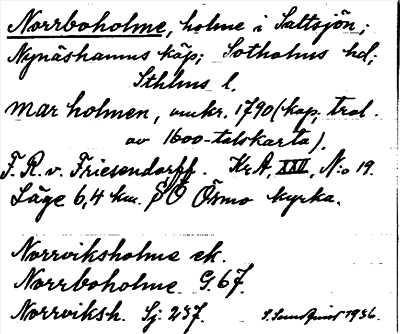 Norrboholme, holme i Saltsjön;
Nynäshamns köp; Sotholms hd;
Sthlms l.
mar holmen, omkr. 1790 (kop. trol.
av 1600-talskarta).
F. R. v. Friesendorff. Kr A, XXI, N:o 19.
Läge 6,4 km. SO Ösmo kyrka.
Norrviksholme ek.
Norrboholme G. 67.
Norrviksh. Sj. 237.
1936.